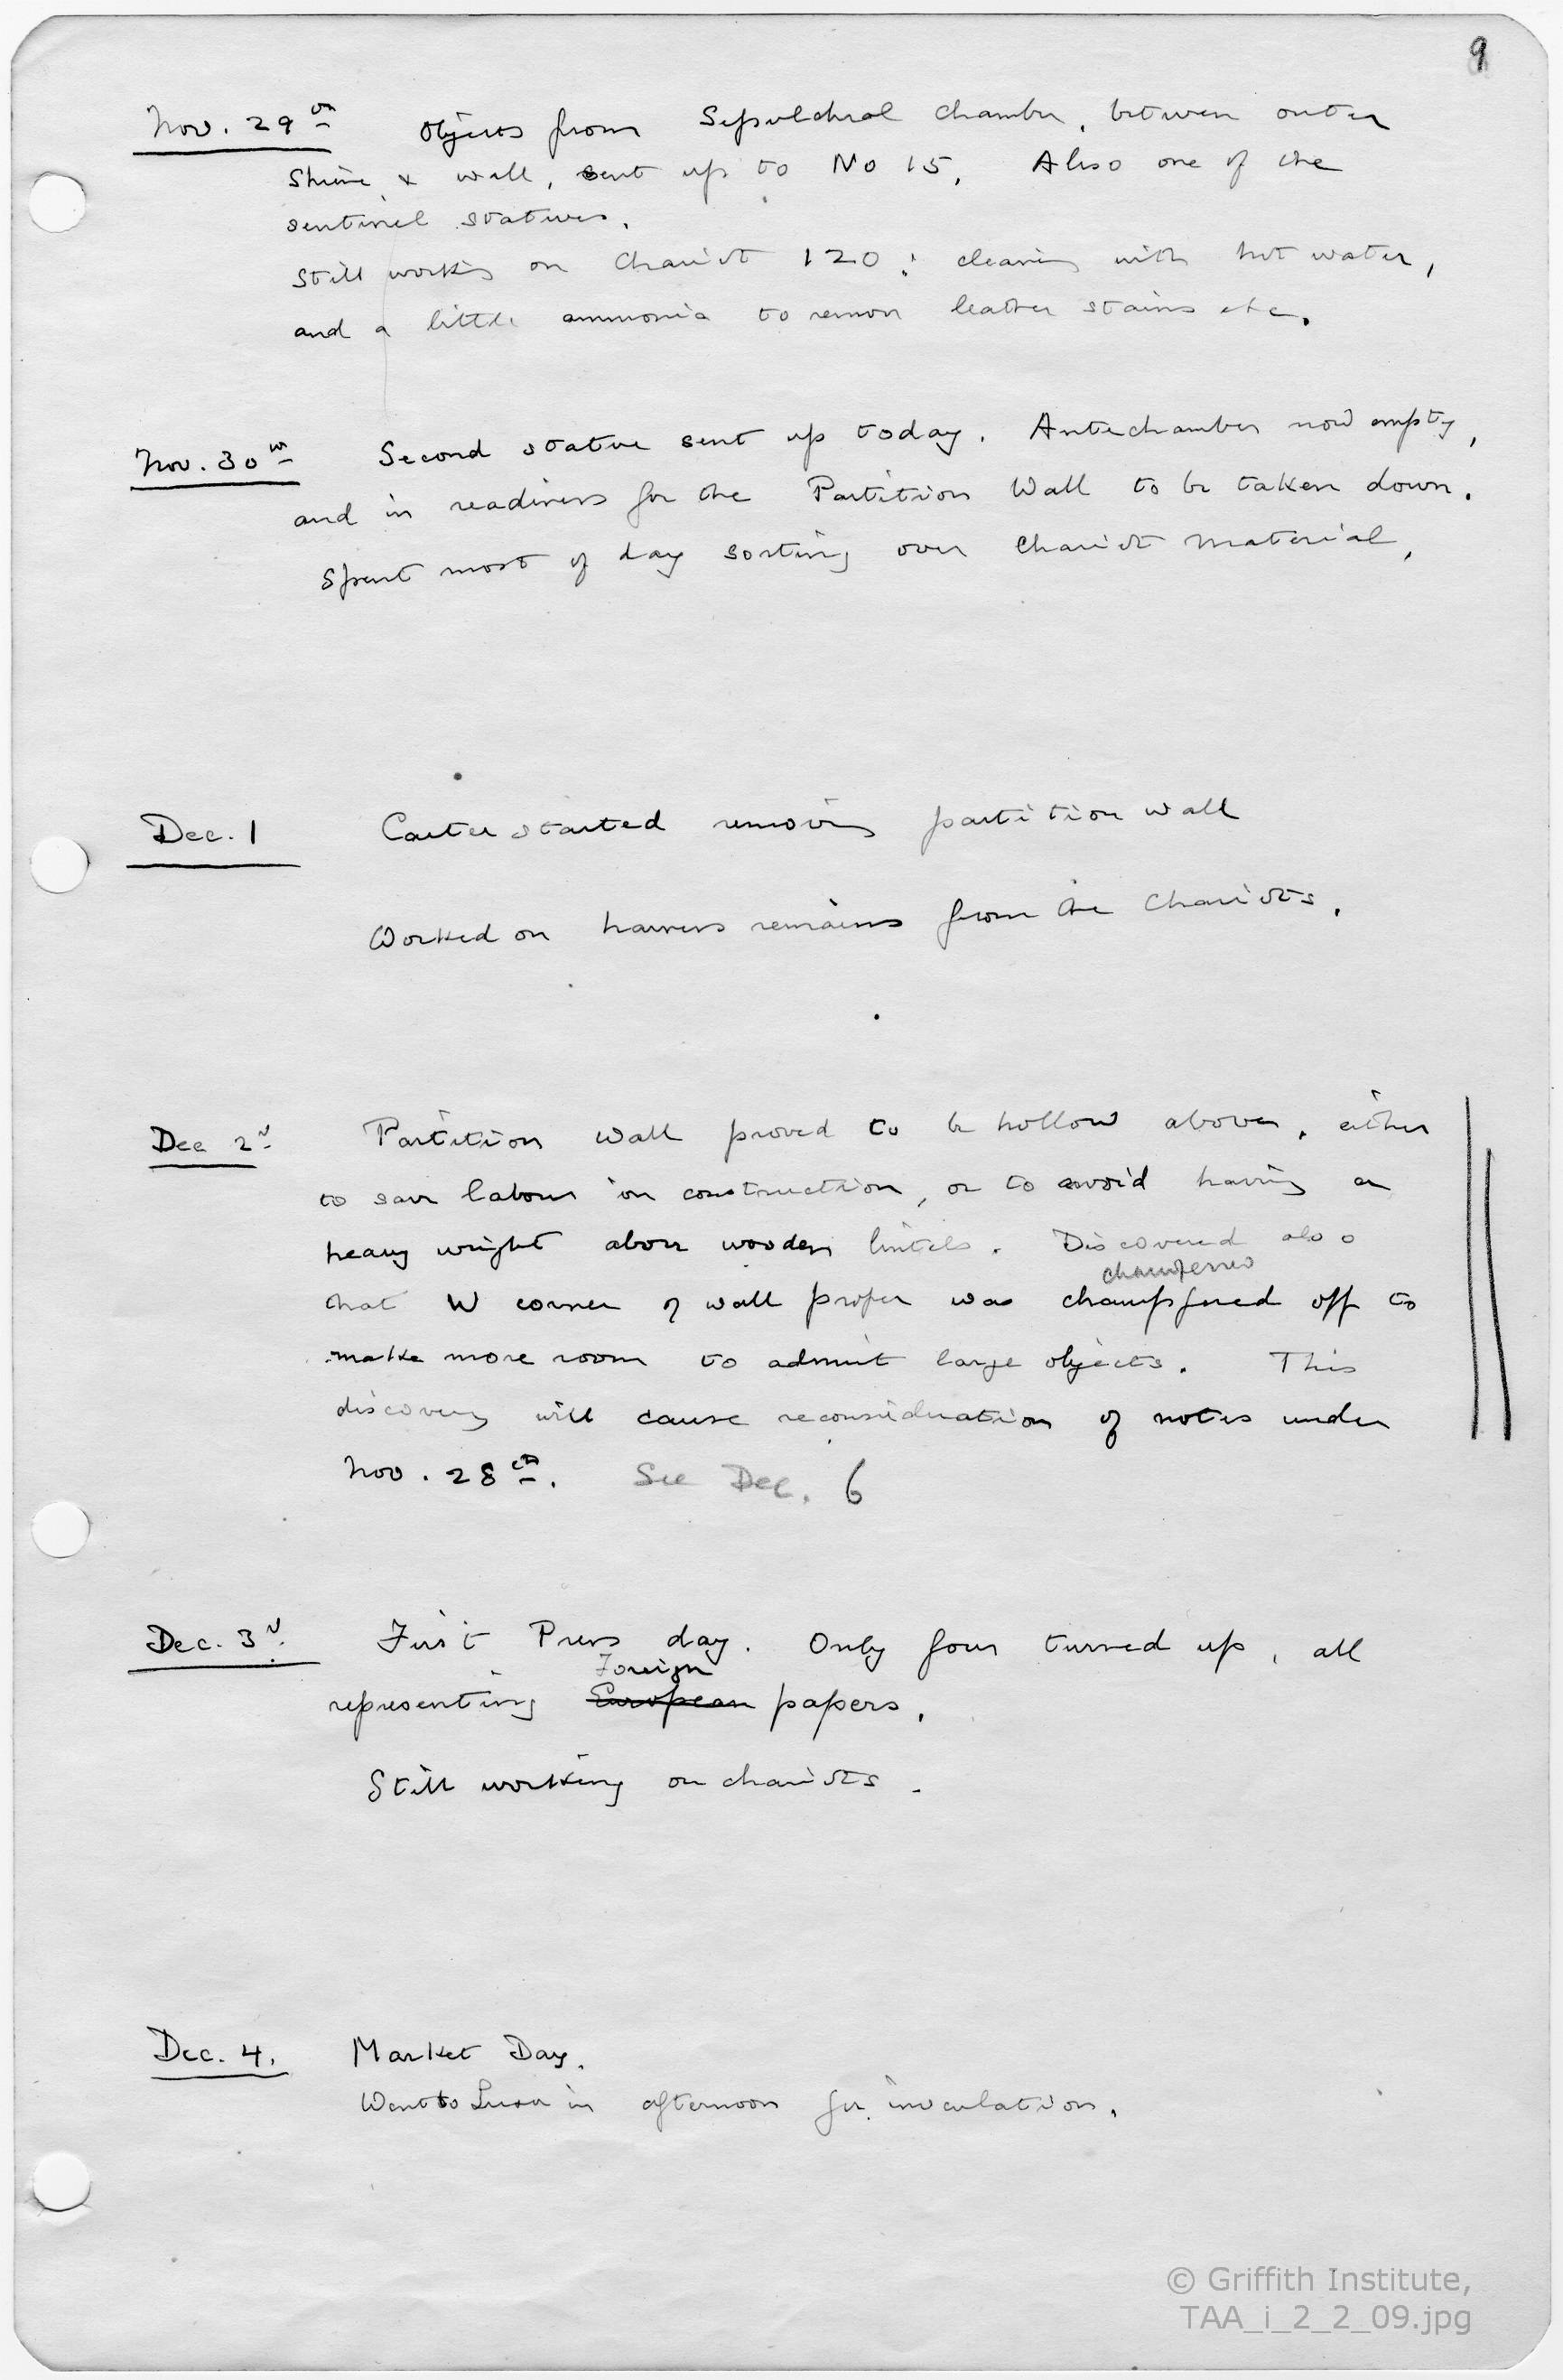 9
Nov. 29th Objects from Sepulchral Chamber, between outer
shrine & wall, sent up to No 15. Also one of the
sentinel statues.
Still working on Chariot 120: cleaning with hot water,
and a little ammonia to remove leather stains etc.
Nov. 30th Second statue sent up today. Antechamber now empty,
and in readiness for the Partition Wall to be taken down.
Spent most of day sorting over Chariot material.
Dec. 1 Carter started removing partition wall
Worked on harness remains from the Chariots.
Dec 2d Partition Wall proved to be hollow above, either
to save labour in construction, or to avoid having a
heavy weight above wooden lintels. Discovered also
chamferred
that W corner of wall proper was champfered off to
make more room to admit large objects. This
discovery will cause reconsideration of notes under
Nov. 28th. See Dec. 6
Dec. 3d. First Press day. Only four turned up, all
Foreign
representing European papers.
Still working on chariots.
Dec. 4. Market Day.
Went to Luxor in afternoon for inoculation.
© Griffith Institute,
TAA_i_2_2_09.jpg